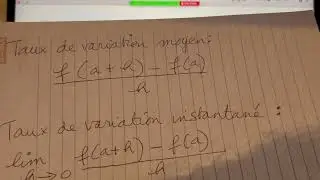 Taux de variation moyen:
f(a+h) - f(a)
h
Taux de variation instantané :
lim f(a+h) - f(a)
h→0 h